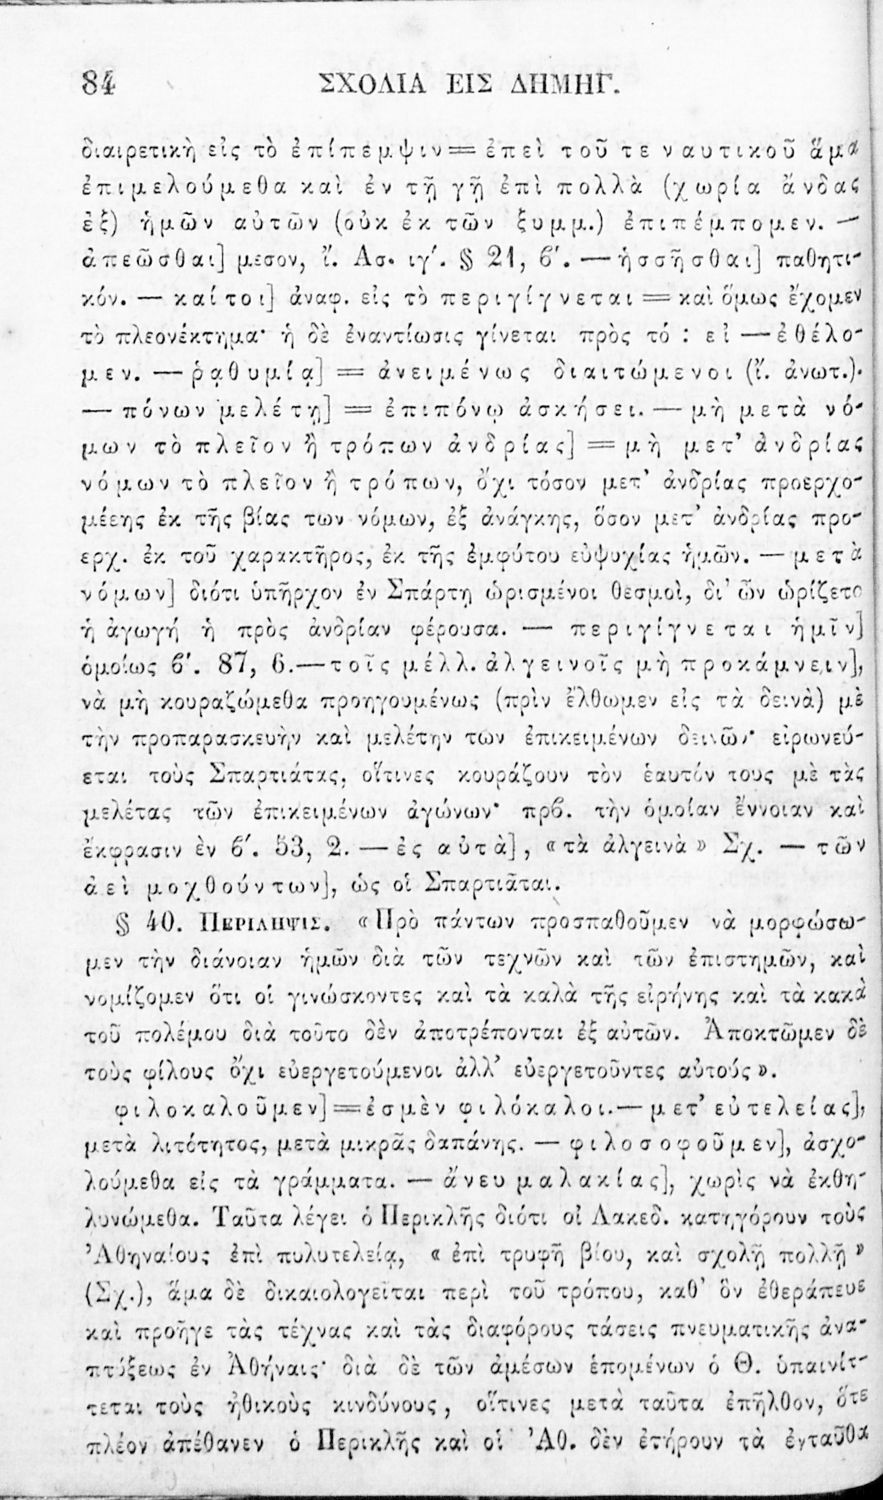 84 ΣΧΟΛΙΑ ΕΙΣ ΔΗΜΗΓ.
διαιρετικὴ εἰς τὸ ἐπίπεμψιν = ἐπεὶ τοῦ τε ναυτικοῦ ἅμα
ἐπιμελούμεθα καὶ ἐν τῇ γῇ ἐπὶ πολλὰ (χωρία ἄνδας
ἐξ) ἡμῶν αὐτῶν (οὐκ ἐκ τῶν ξυμμ.) ἐπιπέμπομεν. —
ἀπεῶσθαι] μεσον, ἴ. Ασ. ιγ′. § 21, ϐ′. — ἡσσῆσθαι] παθητι-
κόν. — καίτοι] ἀναφ. εἰς τὸ περιγίγνεται = καὶ ὅμως ἔχομεν
τὸ πλεονέκτημα· ἡ δὲ ἐναντίωσις γίνεται πρὸς τό : εἰ — ἐθέλο-
μεν. — ῥᾳθυμίᾳ] = ἀνειμένως διαιτώμενοι (ἴ. ἀνωτ.).
— πόνων μελέτῃ] = ἐπιπόνῳ ἀσκήσει. — μὴ μετὰ νό-
μων τὸ πλεῖον ἢ τρόπων ἀνδρίας] = μὴ μετ' ἀνδρίας
νόμων τὸ πλεῖον ἢ τρόπων, ὄχι τόσον μετ' ἀνδρίας προερχο-
μέεης ἐκ τῆς βίας των νόμων, ἐξ ἀνάγκης, ὅσον μετ' ἀνδρίας προ-
ερχ. ἐκ τοῦ χαρακτῆρος, ἐκ τῆς ἐμφύτου εὐψυχίας ἡμῶν. — μετὰ
νόμων] διότι ὑπῆρχον ἐν Σπάρτῃ ὡρισμένοι θεσμοὶ, δι' ὧν ὡρίζετο
ἡ ἀγωγή ἡ πρὸς ἀνδρίαν φέρουσα. — περιγίγνεται ἡμῖν]
ὁμοίως ϐ′. 87, 6. — τοῖς μέλλ. ἀλγεινοῖς μὴ προκάμνειν],
νὰ μὴ κουραζώμεθα προηγουμένως (πρὶν ἔλθωμεν εἰς τὰ δεινὰ) μὲ
τὴν προπαρασκευὴν καὶ μελέτην των ἐπικειμένων δεινῶν· εἰρωνεύ-
εται τοὺς Σπαρτιάτας, οἵτινες κουράζουν τὸν ἑαυτόν τους μὲ τὰς
μελέτας τῶν ἐπικειμένων ἀγώνων· πρϐ. τὴν ὁμοίαν ἔννοιαν καὶ
ἔκφρασιν ἐν ϐ′. 53, 2. — ἐς αὐτὰ], «τὰ ἀλγεινὰ» Σχ. — τῶν
ἀεὶ μοχθούντων], ὡς οἱ Σπαρτιᾶται.
§ 40. ΠΕΡΙΛΗΨΙΣ. «Πρὸ πάντων προσπαθοῦμεν νὰ μορφώσω-
μεν τὴν διάνοιαν ἡμῶν διὰ τῶν τεχνῶν καὶ τῶν ἐπιστημῶν, καὶ
νομίζομεν ὅτι οἱ γινώσκοντες καὶ τὰ καλὰ τῆς εἰρήνης καὶ τὰ κακὰ
τοῦ πολέμου διὰ τοῦτο δὲν ἀποτρέπονται ἐξ αὐτῶν. Ἀποκτῶμεν δὲ
τοὺς φίλους ὄχι εὐεργετούμενοι ἀλλ' εὐεργετοῦντες αὐτούς».
φιλοκαλοῦμεν] = ἐσμὲν φιλόκαλοι. — μετ' εὐτελείας],
μετὰ λιτότητος, μετὰ μικρᾶς δαπάνης. — φιλοσοφοῦμεν], ἀσχο-
λούμεθα εἰς τὰ γράμματα. — ἄνευ μαλακίας], χωρὶς νὰ ἐκθη-
λυνώμεθα. Ταῦτα λέγει ὁ Περικλῆς διότι οἱ Λακεδ. κατηγόρουν τοὺς
Ἀθηναίους ἐπὶ πολυτελείᾳ, «ἐπὶ τρυφῆ βίου, καὶ σχολῇ πολλῇ»
(Σχ.), ἅμα δὲ δικαιολογεῖται περὶ τοῦ τρόπου, καθ' ὃν ἐθεράπευε
καὶ προῆγε τὰς τέχνας καὶ τὰς διαφόρους τάσεις πνευματικῆς ἀνα-
πτύξεως ἐν Ἀθήναις· διὰ δὲ τῶν ἀμέσων ἑπομένων ὁ Θ. ὑπαινίτ-
τεται τοὺς ἠθικοὺς κινδύνους, οἵτινες μετὰ ταῦτα ἐπῆλθον, ὅτε
πλέον ἀπέθανεν ὁ Περικλῆς καὶ οἱ Ἀθ. δὲν ἐτήρουν τὰ ἐνταῦθα